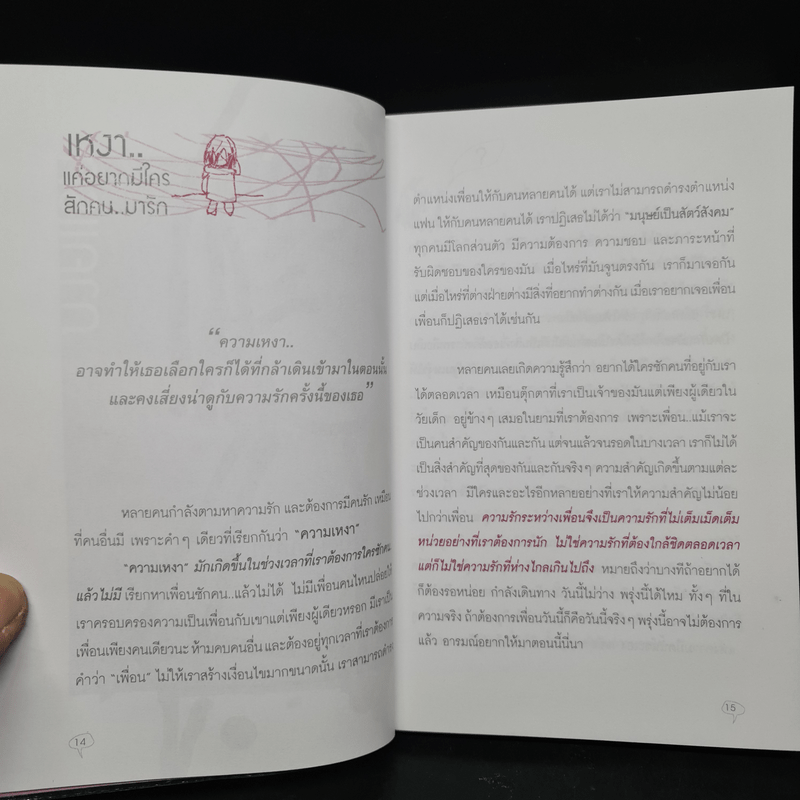 เหงา..
แค่อยากมีใคร
สักคน..มารัก
“ความเหงา..
อาจทำให้เธอเลือกใครก็ได้ที่กล้าเดินเข้ามาในตอนนั้น
และคงเสี่ยงน่าดูกับความรักครั้งนี้ของเธอ”
หลายคนกำลังตามหาความรัก และต้องการมีคนรัก เหมือน
ที่คนอื่นมี เพราะคำๆ เดียวที่เรียกกันว่า “ความเหงา”
“ความเหงา” มักเกิดขึ้นในช่วงเวลาที่เราต้องการใครซักคน
แล้วไม่มี เรียกหาเพื่อนซักคน..แล้วไม่ได้ ไม่มีเพื่อนคนไหนปล่อยให้
เราครอบครองความเป็นเพื่อนกับเขาแต่เพียงผู้เดียวหรอก มีเราเป็น
เพื่อนเพียงคนเดียวนะ ห้ามคบคนอื่น และต้องอยู่ทุกเวลาที่เราต้องการ
คำว่า “เพื่อน” ไม่ให้เราสร้างเงื่อนไขมากขนาดนั้น เราสามารถดำรง
14
ตำแหน่งเพื่อนให้กับคนหลายคนได้ แต่เราไม่สามารถดำรงตำแหน่ง
แฟน ให้กับคนหลายคนได้ เราปฏิเสธไม่ได้ว่า “มนุษย์เป็นสัตว์สังคม”
ทุกคนมีโลกส่วนตัว มีความต้องการ ความชอบ และภาระหน้าที่
รับผิดชอบของใครของมัน เมื่อไหร่ที่มันจูนตรงกัน เราก็มาเจอกัน
แต่เมื่อไหร่ที่ต่างฝ่ายต่างมีสิ่งที่อยากทำต่างกัน เมื่อเราอยากเจอเพื่อน
เพื่อนก็ปฏิเสธเราได้เช่นกัน
หลายคนเลยเกิดความรู้สึกว่า อยากได้ใครซักคนที่อยู่กับเรา
ได้ตลอดเวลา เหมือนตุ๊กตาที่เราเป็นเจ้าของมันแต่เพียงผู้เดียวใน
วัยเด็ก อยู่ข้างๆ เสมอในยามที่เราต้องการ เพราะเพื่อน..แม้เราจะ
เป็นคนสำคัญของกันและกัน แต่จนแล้วจนรอดในบางเวลา เราก็ไม่ได้
เป็นสิ่งสำคัญที่สุดของกันและกันจริงๆ ความสำคัญเกิดขึ้นตามแต่ละ
ช่วงเวลา มีใครและอะไรอีกหลายอย่างที่เราให้ความสำคัญไม่น้อย
ไปกว่าเพื่อน ความรักระหว่างเพื่อนจึงเป็นความรักที่ไม่เต็มเม็ดเต็ม
หน่วยอย่างที่เราต้องการนัก ไม่ใช่ความรักที่ต้องใกล้ชิดตลอดเวลา
แต่ก็ไม่ใช่ความรักที่ห่างไกลเกินไปถึง หมายถึงว่าบางทีถ้าอยากได้
ก็ต้องรอหน่อย กำลังเดินทาง วันนี้ไม่ว่าง พรุ่งนี้ได้ไหม ทั้งๆ ที่ใน
ความจริง ถ้าต้องการเพื่อนวันนี้ก็คือวันนี้จริงๆ พรุ่งนี้อาจไม่ต้องการ
แล้ว อารมณ์อยากให้มาตอนนี้นี่นา
15